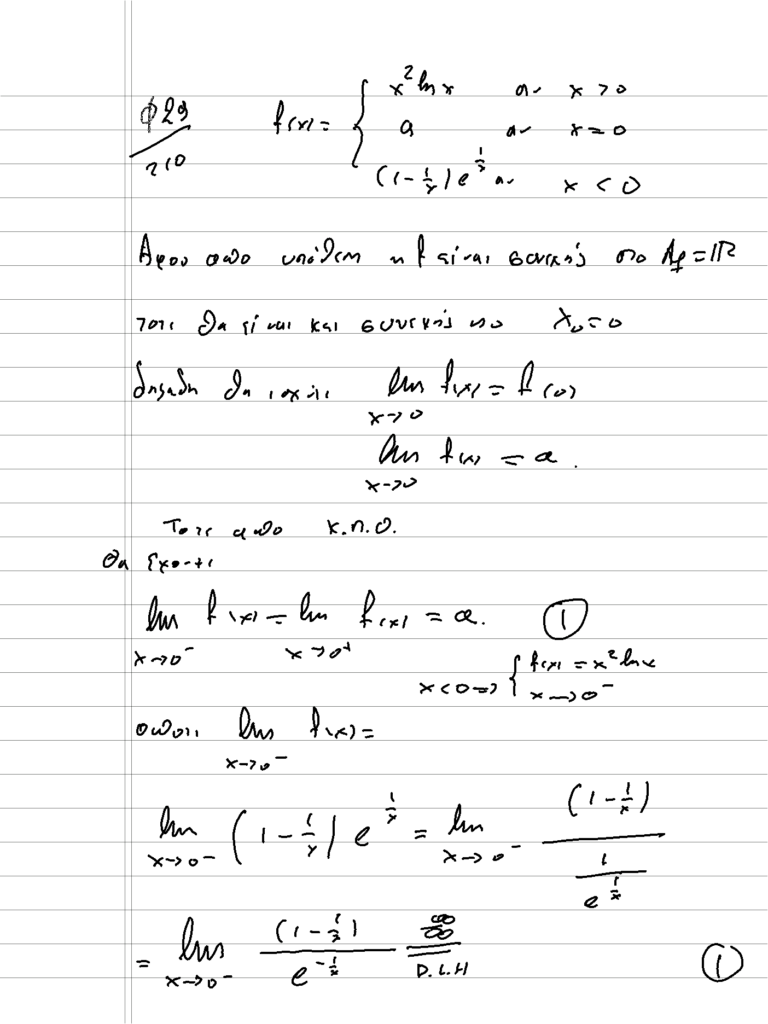 φ29/210 f(x) = { x² ln x αν x > 0
a αν x = 0
(1 - 1/x) e^{1/x} αν x < 0
Αφου απο υποθεση η f ειναι συνεχής στο A_f = ℝ
τοτε θα ειναι και συνεχής στο x₀ = 0
δηλαδη θα ισχύει lim_{x→0} f(x) = f(0)
lim_{x→0} f(x) = α.
Τοτε απο κ.π.ο.
θα εχουμε
lim_{x→0⁻} f(x) = lim_{x→0⁺} f(x) = α. ①
x < 0 ⇒ { f(x) = x² ln x
x → 0⁻
οποτε lim_{x→0⁻} f(x) =
lim_{x→0⁻} (1 - 1/x) e^{1/x} = lim_{x→0⁻} (1 - 1/x) / (1/e^{1/x})
= lim_{x→0⁻} (1 - 1/x) / e^{-1/x} =^{∞/∞}_{D.L.H} ①